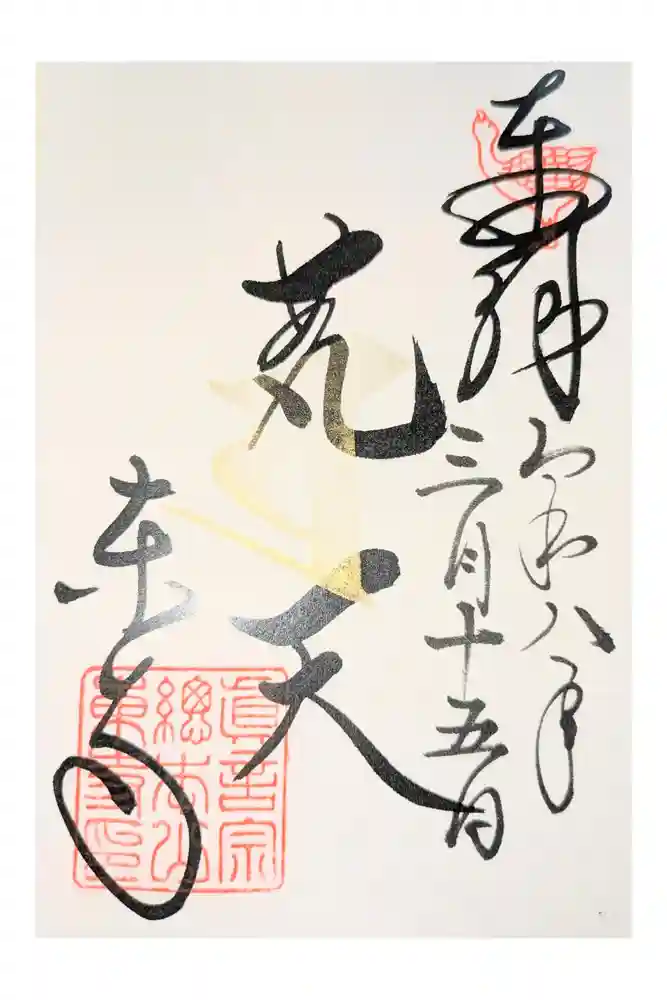 奉拝
令和八年
三月十五日
梵天
東寺
眞言宗
總本山
東寺印